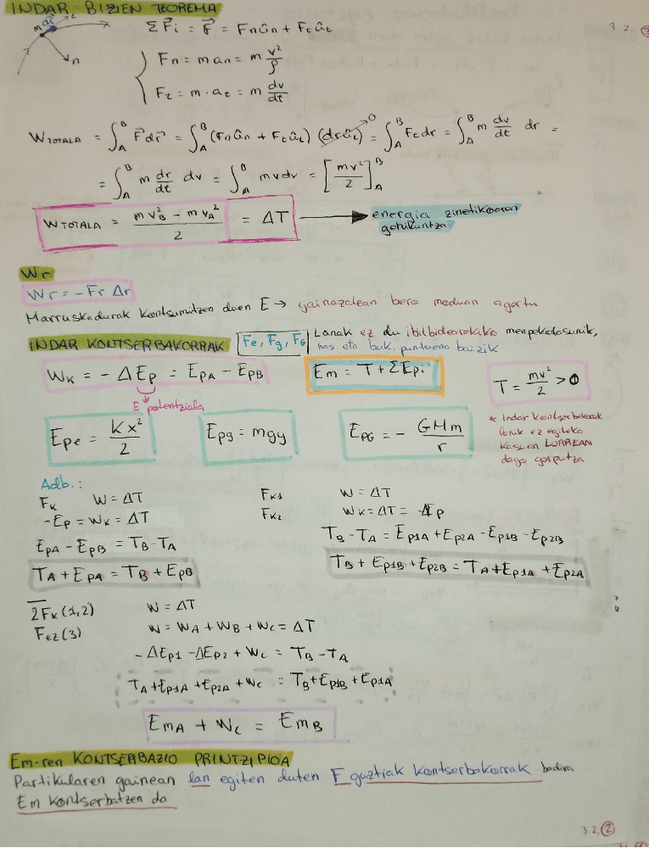 INDAR BIZIEN TEOREMA
3.2.
m dr⃗
n
ΣF⃗i = F⃗ = Fnûn + Ftût
Fn = m an = m v²/ρ
Ft = m · at = m dv/dt
WTOTALA = ∫_A^B F⃗ dr⃗ = ∫_A^B (Fnûn + Ftût) (drût) = ∫_A^B Ft dr = ∫_A^B m dv/dt dr =
= ∫_A^B m dr/dt dv = ∫_A^B mvdv = [mv²/2]_A^B
WTOTALA = (m vB² − m vA²)/2 = ΔT → energia zinetikoaren
Wr
Wr = −Fr Δr
Marruskadurak kontsumitzen duen E → gainazalean bero moduan agertu
INDAR KONTSERBAKORRAK Fe, Fg, FG Lanak ez du ibilbidearekiko menpekotasunik,
has eta buk. puntuena baizik
WK = − ΔEp = EpA − EpB
E potentziala
Em = T + ΣEpi
T = mv²/2 > 0
Epe = Kx²/2
Epg = mgy
EPG = − GMm/r
* Indar kontserbakorrak
lanik ez egiteko
kasuan LURREAN
dago gorputza
Adb.:
FK W = ΔT
−Ep = WK = ΔT
EpA − EpB = TB − TA
TA + EpA = TB + EpB
FK1 W = ΔT
FK2 WK = ΔT = −ΔEp
TB − TA = Ep1A + Ep2A − Ep1B − Ep2B
TB + Ep1B + Ep2B = TA + Ep1A + Ep2A
2FK (1,2) W = ΔT
Fez (3) W = WA + WB + WC = ΔT
−ΔEp1 − ΔEp2 + WC = TB − TA
TA + Ep1A + Ep2A + WC = TB + Ep1B + Ep1A
EmA + WC = EmB
Em-ren KONTSERBAZIO PRINTZIPIOA
Partikularen gainean lan egiten duten F guztiak kontserbakorrak badira
Em kontserbatzen da
3.2. ②